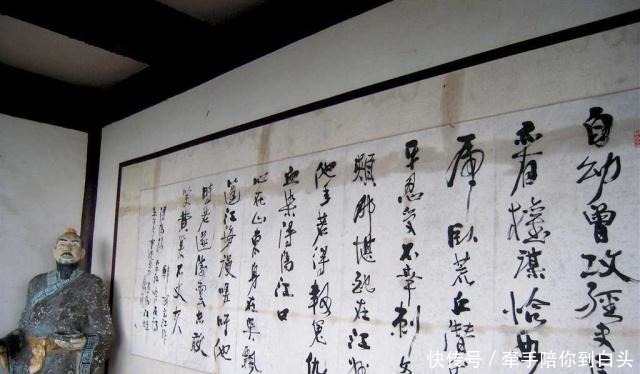 自幼曾攻經史
亦有權謀恰如
虎臥荒丘潛
牙忍受不幸刺文
頰那堪配在江州
他年若得報冤仇
血染潯陽江口
心在山東身在吳飄
蓬江海謾嗟吁他
時若遂凌雲志敢
笑黃巢不丈夫
快传号／牵手陪你到白头